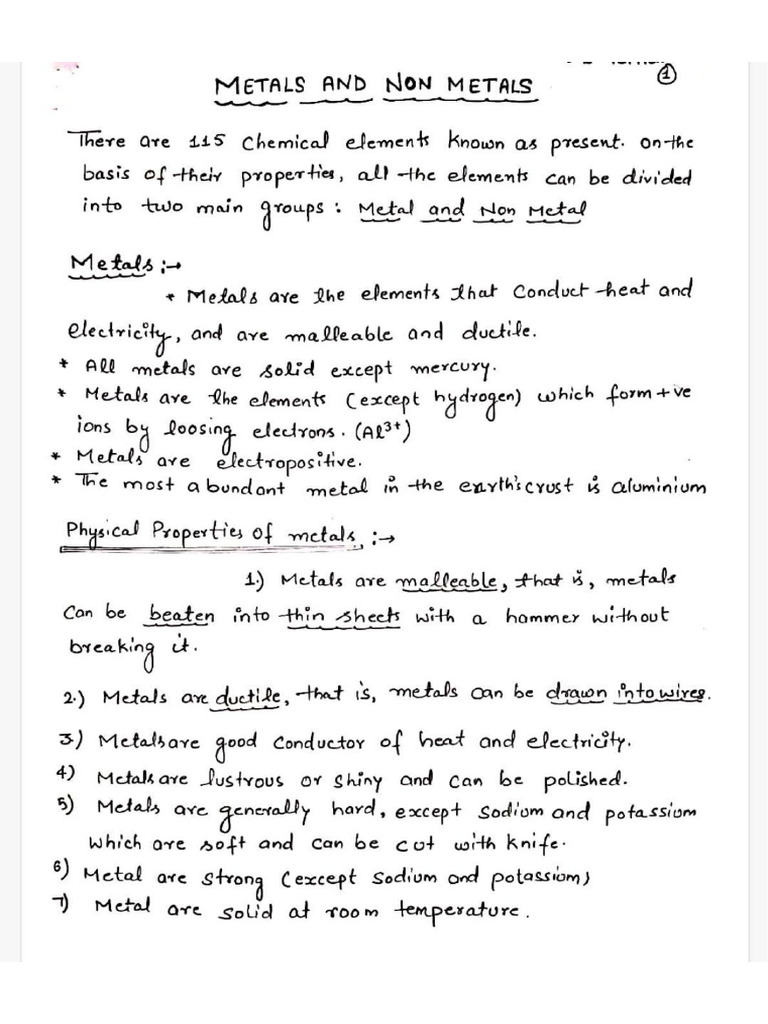 1
METALS AND NON METALS
There are 115 Chemical elements known as present. on the
basis of their properties, all the elements can be divided
into two main groups : Metal and Non Metal
Metals :→
* Metals are the elements that conduct heat and
electricity, and are malleable and ductile.
* All metals are solid except mercury.
* Metals are the elements (except hydrogen) which form +ve
ions by loosing electrons. (Al³⁺)
* Metals are electropositive.
* The most abundant metal in the earth's crust is aluminium
Physical Properties of metals :→
1.) Metals are malleable, that is, metals
Can be beaten into thin sheets with a hammer without
breaking it.
2.) Metals are ductile, that is, metals can be drawn into wires.
3) Metals are good conductor of heat and electricity.
4) Metals are lustrous or shiny and can be polished.
5) Metals are generally hard, except sodium and potassium
which are soft and can be cut with knife.
6) Metal are strong (except sodium and potassium)
7) Metal are solid at room temperature.